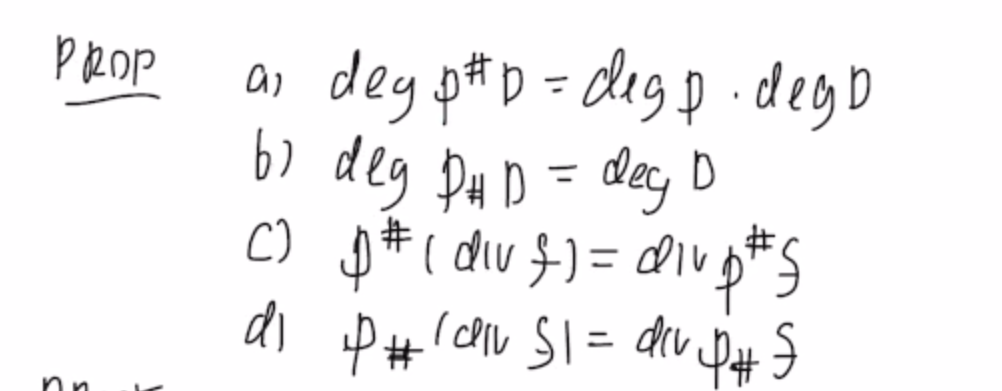 PROP a) deg p^# D = deg p · deg D
b) deg p_# D = deg D
c) p^# (div f) = div p^# f
d) p_# (div f) = div p_# f